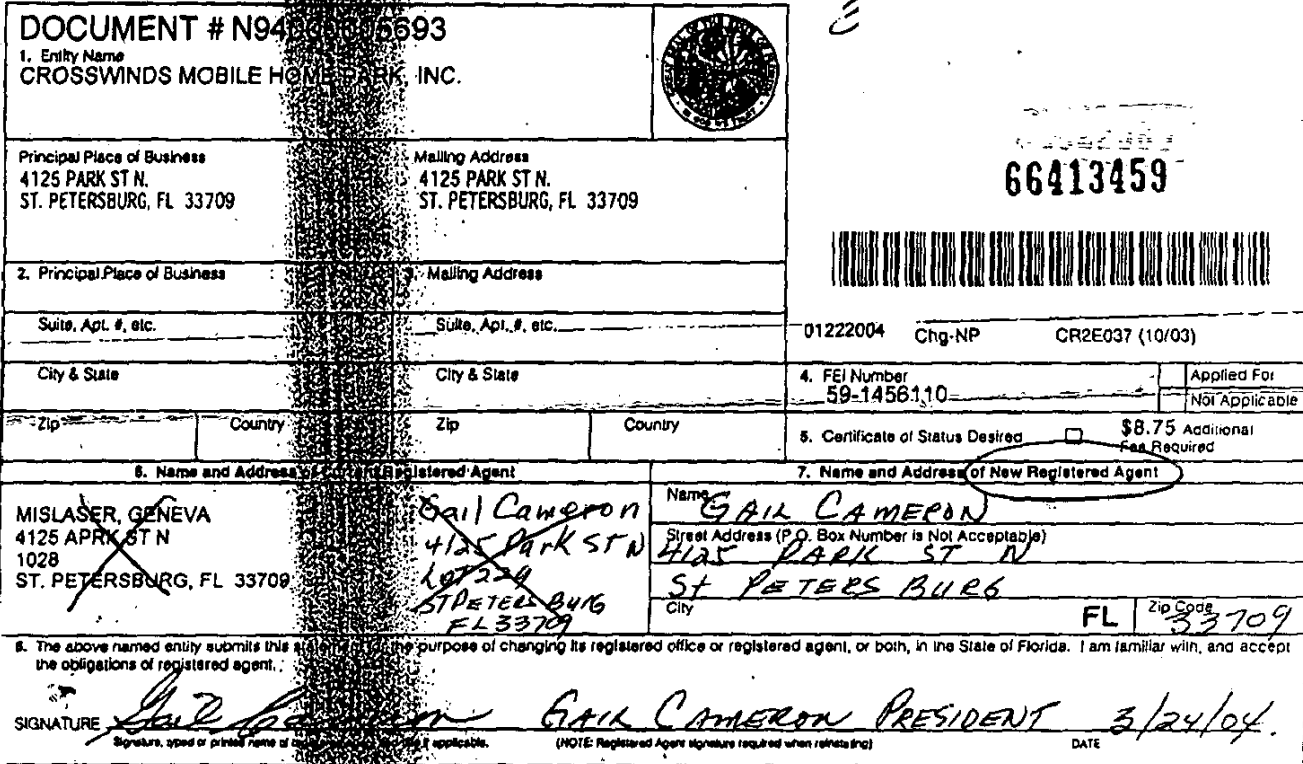 DOCUMENT # N94
1. Entity Name
CROSSWINDS MOBILE HOME PARK, INC.
66413459
Principal Place of Business
4125 PARK ST N.
ST. PETERSBURG, FL 33709
Mailing Address
4125 PARK ST N.
ST. PETERSBURG, FL 33709
2. Principal Place of Business
3. Mailing Address
Suite, Apt. #, etc.
Suite, Apt. #, etc.
01222004 Chg-NP CR2E037 (10/03)
City & State
City & State
4. FEI Number
59-1456110
Applied For
Not Applicable
Zip
Country
Zip
Country
5. Certificate of Status Desired
$8.75 Additional
Fee Required
6. Name and Address of Current Registered Agent
7. Name and Address of New Registered Agent
MISLASER, GENEVA
4125 APRK ST N
1028
ST. PETERSBURG, FL 33709
Gail Cameron
4125 Park ST N
LOT 229
ST PETERS BURG
FL 33709
Name
GAIL CAMERON
Street Address (P.O. Box Number is Not Acceptable)
4125 PARK ST N
St PETERS BURG
City
FL
Zip Code
33709
8. The above named entity submits this statement for the purpose of changing its registered office or registered agent, or both, in the State of Florida. I am familiar with, and accept
the obligations of registered agent.
SIGNATURE Gail Cameron GAIL CAMERON PRESIDENT 3/24/04
Signature, typed or printed name of if applicable.
(NOTE: Registered Agent signature required when reinstating)
DATE